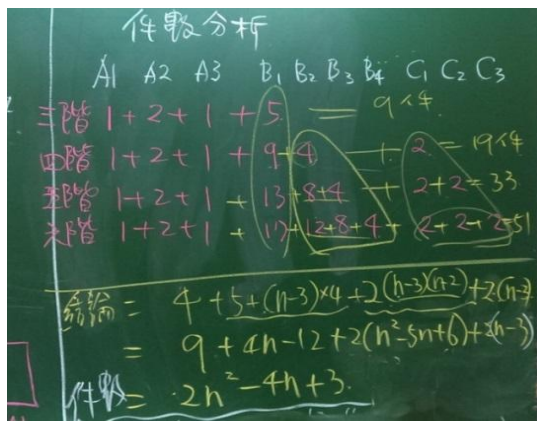 件數分析
A1 A2 A3 B1 B2 B3 B4 C1 C2 C3
三階 1+2+1+5 = 9件
四階 1+2+1+9+4 + 2 = 19件
五階 1+2+1+13+8+4 + 2+2=33
六階 1+2+1+17+12+8+4+2+2+2=51
結論 = 4+5+(n-3)×4+2(n-3)(n-2)+2(n-3)
= 9+4n-12+2(n²-5n+6)+2(n-3)
件數= 2n²-4n+3